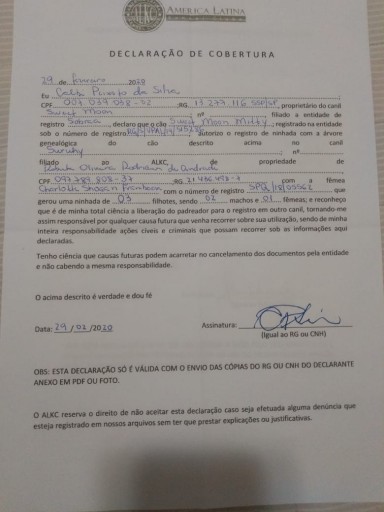 AMERICA LATINA
DECLARAÇÃO DE COBERTURA
29 de fevereiro / 2020
Eu
CPF RG , proprietário do canil
Sweet Moon nº , filiado a entidade de
registro Sobraci , declaro que o cão Sweet Moon , registrado na entidade
sob o número de registro , autorizo o registro de ninhada com a árvore
genealógica do cão descrito acima no canil
, nº
filiado ao ALKC, de propriedade de
de Andrade
CPF RG com a fêmea
com o número de registro que
gerou uma ninhada de 03 filhotes, sendo 02 machos e 01 fêmeas; e reconheço
que é de minha total ciência a liberação do padreador para o registro em outro canil, tornando-me
assim responsável por qualquer causa futura que venha recorrer sobre sua utilização, sendo de minha
inteira responsabilidade ações cíveis e criminais que possam recorrer sob as informações aqui
declaradas.
Tenho ciência que causas futuras podem acarretar no cancelamento dos documentos pela entidade
e não cabendo a mesma responsabilidade.
O acima descrito é verdade e dou fé
Data: 29 / 02 /2020 Assinatura:
(Igual ao RG ou CNH)
OBS: ESTA DECLARAÇÃO SÓ É VÁLIDA COM O ENVIO DAS CÓPIAS DO RG OU CNH DO DECLARANTE
ANEXO EM PDF OU FOTO.
O ALKC reserva o direito de não aceitar esta declaração caso seja efetuada alguma denúncia que
esteja registrado em nossos arquivos sem ter que prestar explicações ou justificativas.